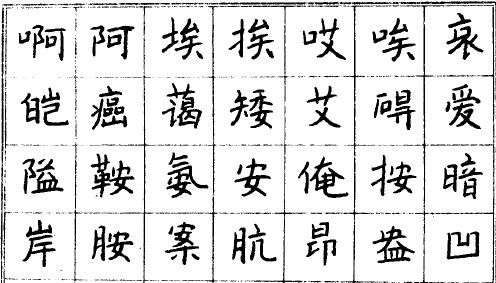 啊阿埃挨哎唉哀
皑癌蔼矮艾碍爱
隘鞍氨安俺按暗
岸胺案肮昂盎凹